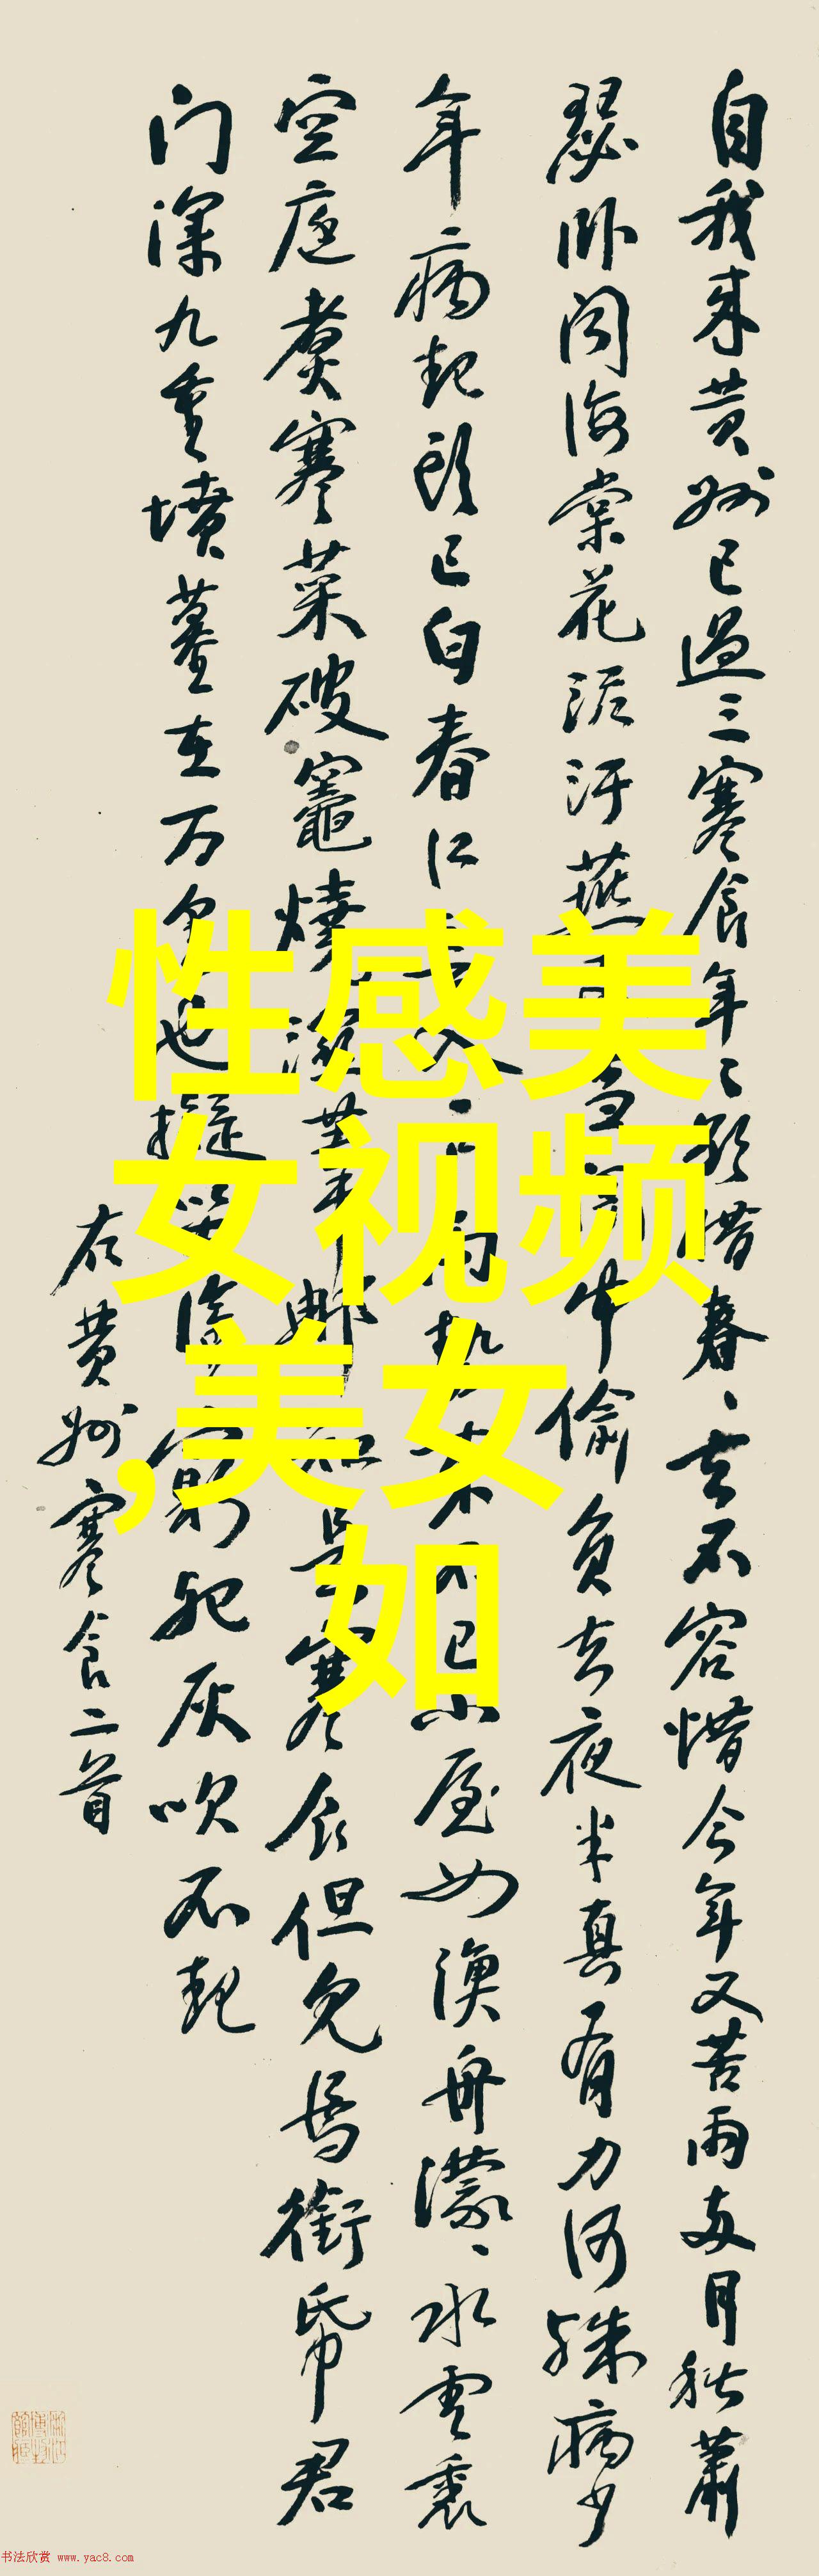 自我来黄州已過三寒食年々欲惜春、去不容惜今年又苦雨两月秋蕭
瑟卧闻海棠花泥汙燕雪中偷負去夜半真有力何殊病少
年病起頭已白春江入雨势不已小屋如漁舟濛、水雲裏
空庖煮寒菜破竈燒濕葦那知是寒食但見烏銜帋君
门深九重墳墓在万里也擬哭途窮死灰吹不起
右黄州寒食二首
性感美
女视频
,美女
如
书法欣赏 www.yac8.com